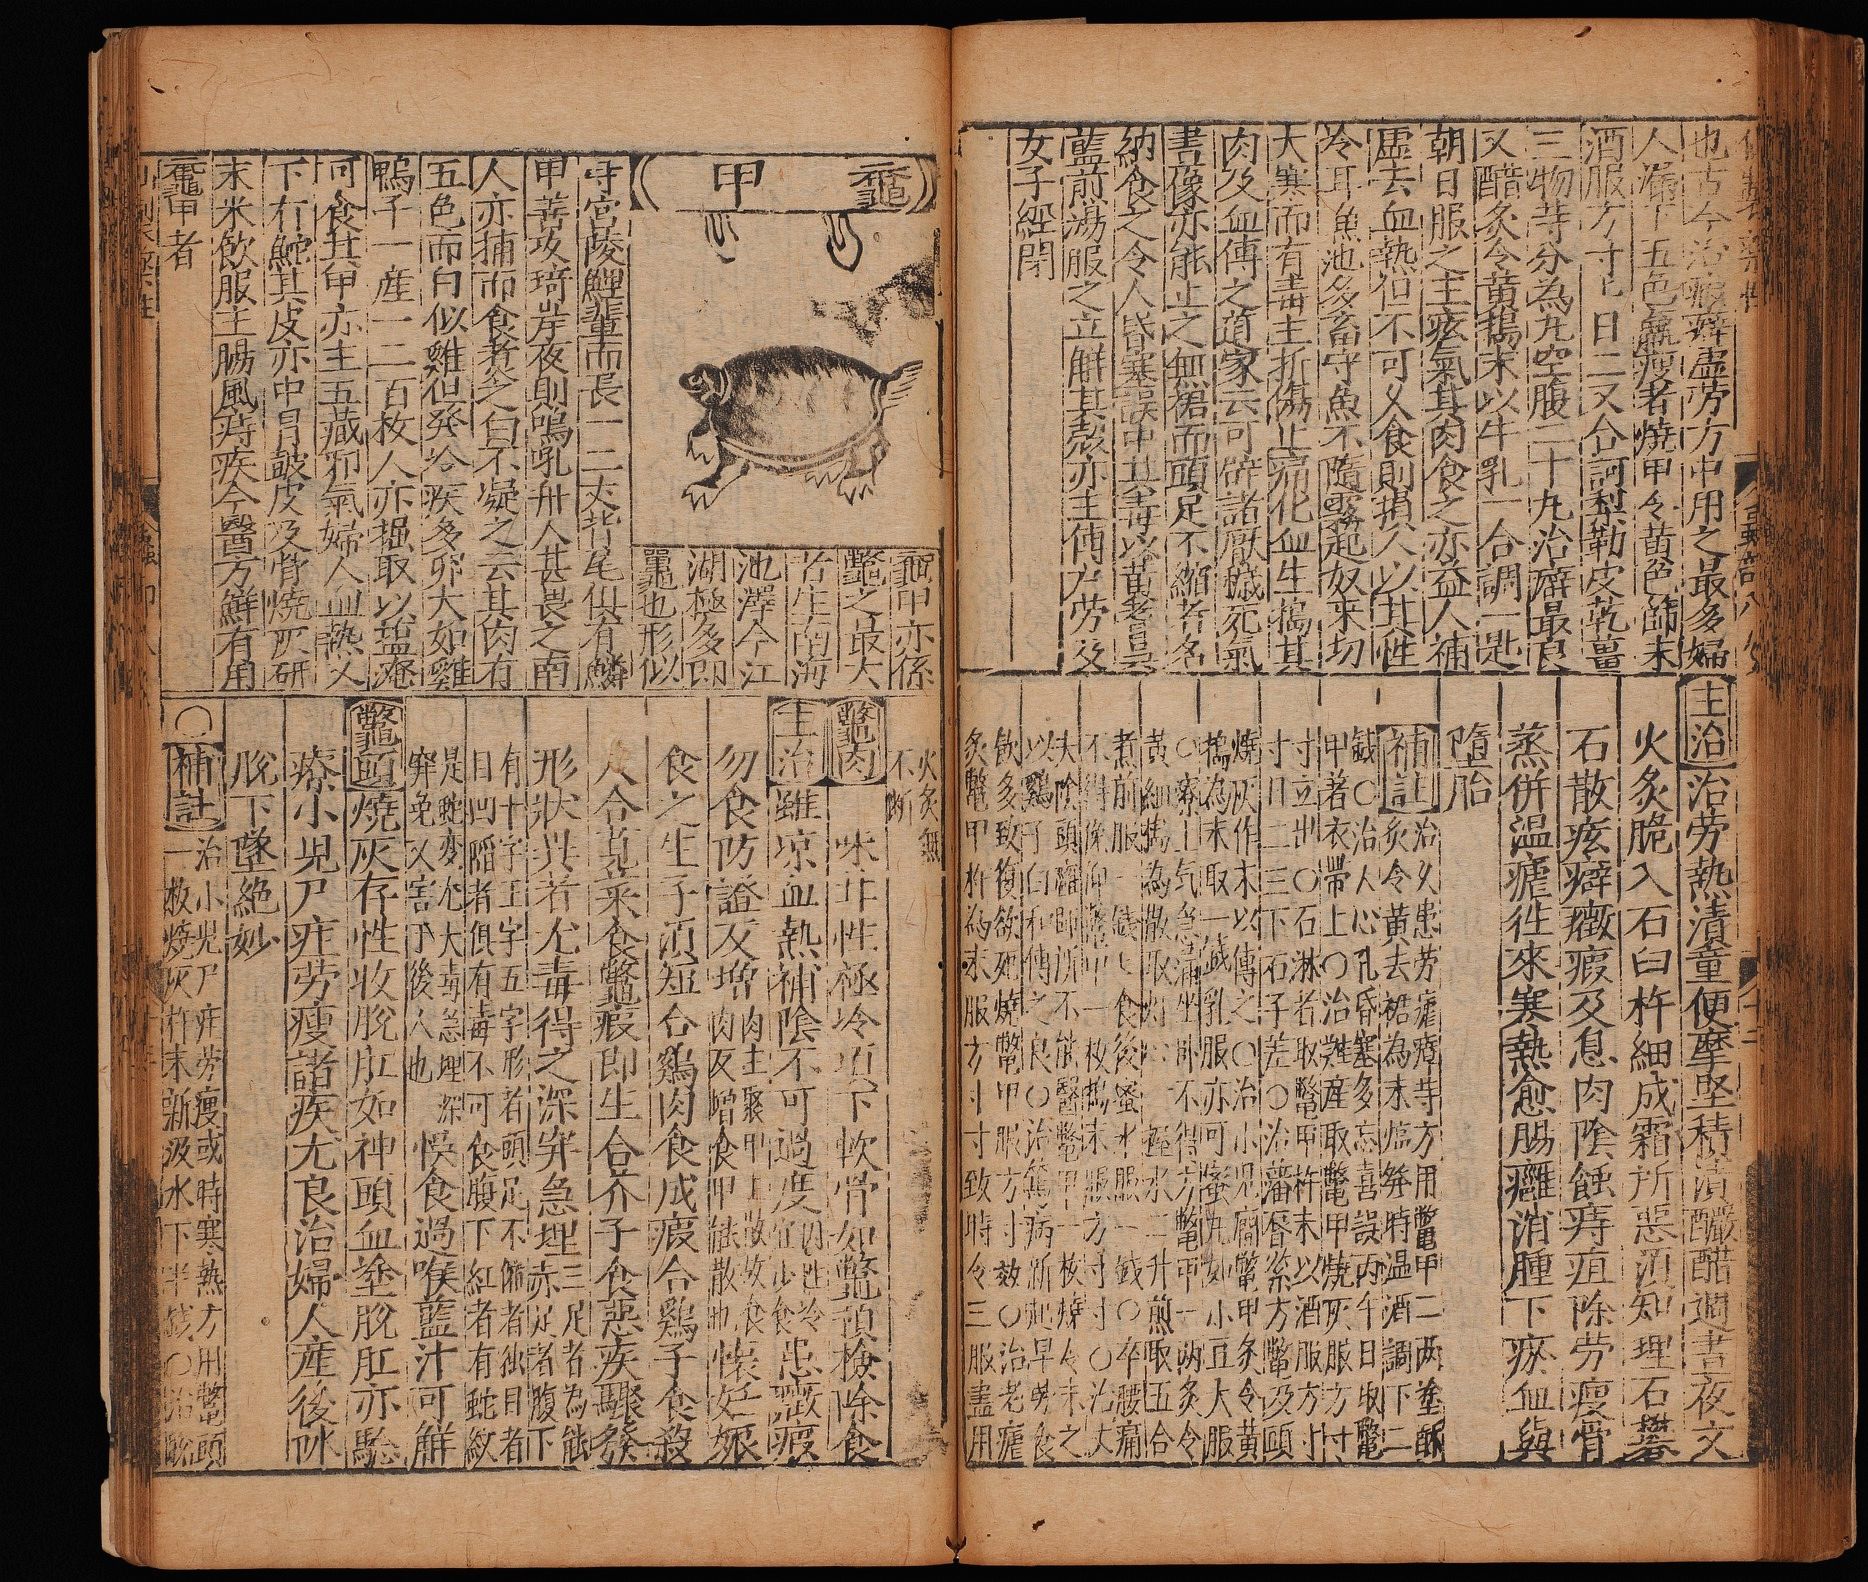 也古今治瘕癖虛勞方中用之最多婦
人漏下五色羸瘦者燒甲令黃色篩末
酒服方寸匕日二又合訶梨勒皮乾薑
三物等分為丸空腹二十丸治癖最良
又醋炙令黃搗末以牛乳一合調一匙
朝日服之主痃氣其肉食之亦益人補
虛去血熱但不可久食則損人以其性
冷耳魚池多畜守魚不隨霧起奴來切
大寒而有毒主折傷止痛化血生搗其
肉及血傅之道家云可辟諸厭穢死氣
畫像亦能止之無裙而頭足不縮者名
納食之令人昏塞誤中其毒以黃耆吳
藍煎湯服之立解其殼亦主傳尸勞及
女子經閉
主治
治勞熱漬童便摩堅積漬釅醋週晝夜文
火炙脆入石臼杵細成霜所惡須知理石礬
石散痃癖癥瘕及息肉陰蝕痔疽除勞瘦骨
蒸併溫瘧往來寒熱愈腸癰消腫下瘀血與
墮胎
補註
治久患勞瘧瘴等方用鱉甲二兩塗酥
炙令黃去裙為末臨發時溫酒調下二
錢○治人心孔昏塞多忘喜誤丙午日取鱉
甲著衣帶上○治難產取鱉甲燒灰服方寸
寸立出○石淋者取鱉甲杵末以酒服方寸
寸日二三下石子差○治
燒灰作末以傅之○治小兒癇鱉甲炙令黃
搗為末取一錢乳服亦可蜜丸如小豆大服
○療上气急滿坐臥不得方鱉甲一兩炙令
黃細搗為散取
水二升煎取五合
食後蜜水服一錢○卒腰痛
不得俛仰鱉甲一枚搗末服方寸寸○治丈
夫陰頭癰師所不能醫鱉甲一枚燒令末之
以鷄子白和傅之良○治篤病新起早勞食
飲多致復欲死燒鱉甲服方寸寸效○治老瘧
炙鱉甲杵為末服方寸寸致時令三服盡用
火炙無
不斷
黿甲
黿甲亦係
鱉之最大
者生南海
池澤今江
湖極多即
鼉也形似
守宮陵鯉輩而長一二丈背尾俱有鱗
甲善攻碕岸夜則鳴吼舟人甚畏之南
人亦捕而食煮炙之白不凝之云其肉有
五色而白似雞但發冷疾多卵大如雞
鴨子一產一二百枚人亦掘取以鹽淹
可食其甲亦主五藏邪氣婦人血熱又
下有鮀其皮亦中冒鼓皮及骨燒灰研
末米飲服主腸風痔疾今醫方鮮有用
黿甲者
鱉肉
味甘性極冷項下軟骨如鱉須檢除食
主治
雖涼血熱補陰不可過度
患癥瘕
勿食防證反增
懷妊娠
食之生子項短合鷄肉食成瘕合鷄子食殺
人合莧菜食鱉瘕即生合芥子食惡疾驟發
形狀異者尤毒得之深穽急埋
赤足者腹下
有十字王字五字形者頭足不縮者獨目者
目凹陷者俱有毒不可食腹下紅者有蛇紋
是蛇變尤大毒急埋深
穽免又害了後人也
悞食過喉藍汁可解
鱉頭
燒灰存性收脫肛如神頭血塗脫肛亦驗
療小兒尸疰勞瘦諸疾尤良治婦人產後
脫下墜絕妙
○補註
治小兒尸疰勞瘦或時寒熱方用鱉頭
一枚燒灰杵末新汲水下半錢○治